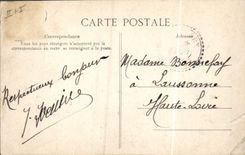 CARTE POSTALE
Correspondance
Adresse
Tous les pays étrangers n'acceptent pas la
correspondance au recto
se renseigner à la poste
Respectueux bonjour
Madame Bonnefoy
à
Laussonne
Haute-Loire